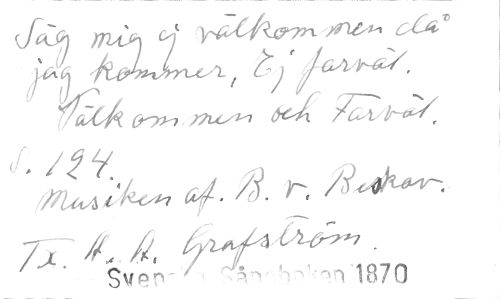 Säg mig ej välkommen då
jag kommer, Ej farväl.
Välkommen och Farväl.
S. 124.
Musiken af. B. v. Beskov.
Tx. A. A. Grafström.
Svenska Sångboken 1870